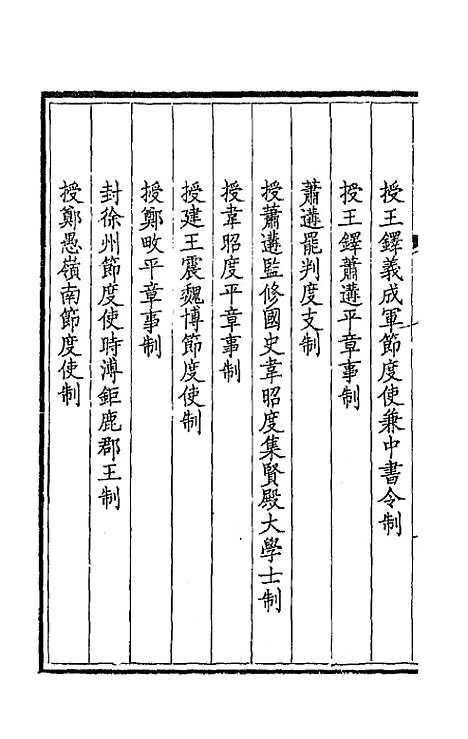 授王鐸義成軍節度使兼中書令制
授王鐸蕭遘平章事制
蕭遘罷判度支制
授蕭遘監修國史韋昭度集賢殿大學士制
授韋昭度平章事制
授建王震魏博節度使制
授鄭畋平章事制
封徐州節度使時溥鉅鹿郡王制
授鄭愚嶺南節度使制